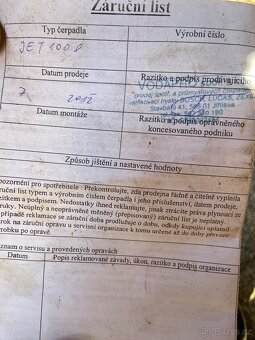 Záruční list
Typ čerpadla Výrobní číslo
JET 100
Datum prodeje Razítko a podpis prodávajícího
7. 2012
Datum montáže Razítko a podpis oprávněného
koncesovaného podniku
Způsob jištění a nastavené hodnoty
pozornění pro spotřebitele : Překontrolujte, zda prodejna řádně a čitelně vyplnila
ruční list typem a výrobním číslem čerpadla i jeho příslušenství, datem prodeje,
zítkem a podpisem. Nedostatky ihned reklamujte, jinak ztrácíte práva plynoucí ze
ruky. Neúplný a neoprávněně měněný (přepisovaný) záruční seznam je neplatný.
případě reklamace se záruční doba prodlužuje o dobu, kdy kupující uplatnil
rok na záruční opravu u servisní organizace k tomu určené až do doby převzetí
robku po opravě.
znam o servisu a provedených opravách
Datum Popis reklamované závady, úkon, razítko a podpis organizace